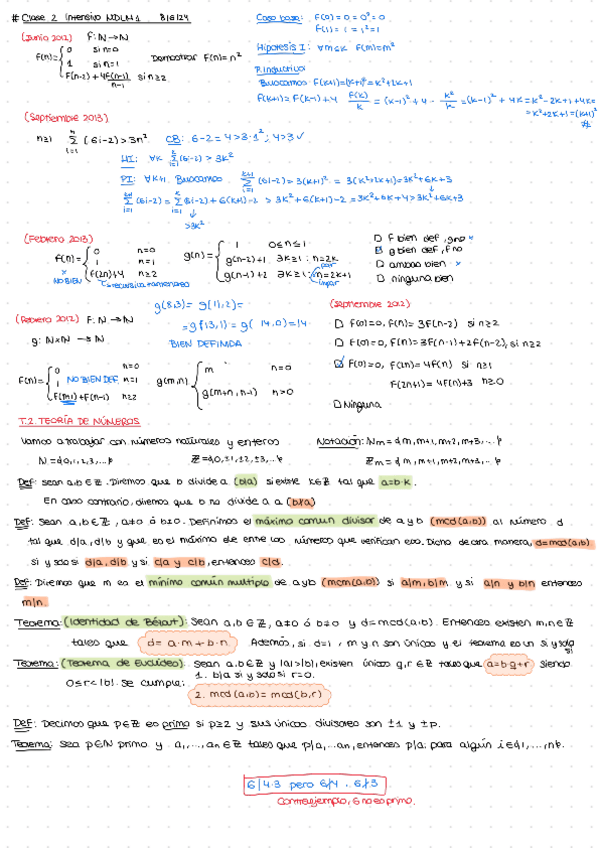 # Clase 2 Intensivo MDLM1 8/6/24
(Junio 2012) f: N→N
f(n)= { 0 si n=0
1 si n=1
f(n-2) + 4f(n-1)/n-1 si n≥2
Demostrar f(n)=n²
Caso base: f(0)=0=0²=0
f(1)=1=1²=1
Hipótesis I: ∀m≤k f(m)=m²
P. inductivo:
Buscamos f(k+1)=(k+1)²=k²+2k+1
f(k+1)=f(k-1)+4 f(k)/k = (k-1)²+4· k²/k =(k-1)²+4k=k²-2k+1+4k=
=k²+2k+1=(k+1)²
(Septiembre 2013)
n≥1 Σ(6i-2)>3n² CB: 6-2=4>3·1²; 4>3 ✓
HI: ∀k Σ(6i-2)>3k²
PI: ∀k+1 Buscamos Σ(6i-2)=3(k+1)²=3(k²+2k+1)=3k²+6k+3
Σ(6i-2)=Σ(6i-2)+6(k+1)-2 > 3k²+6(k+1)-2=3k²+6k+4>3k²+6k+3
>3k²
(Febrero 2013)
f(n)= { 0 n=0
1 n=1
f(2n)+4 n≥2
NO BIEN
g(n)= { 1 0≤n≤1
g(n-2)+1 ∃k≥1: n=2k par
g(n-1)+2 ∃k≥1: n=2k+1 impar
□ f bien def, g no
☑ g bien def, f no
□ ambas bien
□ ninguna bien
g(8,3)= g(11,2)=
=g(13,1)=g(14,0)=14
BIEN DEFINIDA
(Febrero 2012) f: N→N
g: N×N → N
f(n)= { 0 n=0
1 NO BIEN DEF. n=1
f(n+1)+f(n-1) n≥2
g(m,n) { m n=0
g(m+n, n-1) n>0
(Septiembre 2012)
□ f(0)=0, f(n)=3f(n-2) si n≥2
□ f(0)=0, f(n)=3f(n-1)+2f(n-2), si n≥2
☑ f(0)=0, f(2n)=4f(n) si n≥1
f(2n+1)=4f(n)+3 n≥0
□ Ninguna
T.2. TEORÍA DE NÚMEROS
Vamos a trabajar con números naturales y enteros
Notación: Nm={m, m+1, m+2, m+3,...}
N={0,1,2,3,...} Z={0,±1,±2,±3,...} Zm={m, m+1, m+2, m+3,...}
Def: sean a,b∈Z. Diremos que b divide a (b|a) si existe k∈Z tal que a=b·k.
En caso contrario, diremos que b no divide a a (b∤a)
Def: Sean a,b∈Z, a≠0 ó b≠0. Definimos el máximo común divisor de a y b (mcd(a,b)) al número d
tal que d|a, d|b y que es el máximo de entre los números que verifican eso. Dicho de otra manera, d=mcd(a,b)
si y solo si d|a, d|b y si c|a y c|b, entonces c|d.
Def: Diremos que m es el mínimo común multiplo de a y b (mcm(a,b)) si a|m, b|m y si a|n y b|n entonces
m|n.
Teorema: (Identidad de Bézout): Sean a,b∈Z, a≠0 ó b≠0 y d=mcd(a,b). Entonces existen m,n∈Z
tales que d=a·m+b·n Además, si d=1, m y n son únicos y el teorema es un si y solo
si
Teorema: (Teorema de Euclides). Sean a,b∈Z y |a|>|b|, existen únicos q,r∈Z tales que a=b·q+r siendo
0≤r<|b|. Se cumple: 1. b|a si y solo si r=0.
2. mcd(a,b)=mcd(b,r)
Def: Decimos que p∈Z es primo si p≥2 y sus únicos divisores son ±1 y ±p.
Teorema: sea p∈N primo y a1,...,an∈Z tales que p|a1...an, entonces p|ai para algún i∈{1,...,n}.
6|4·3 pero 6∤4, 6∤3
Contraejemplo, 6 no es primo.